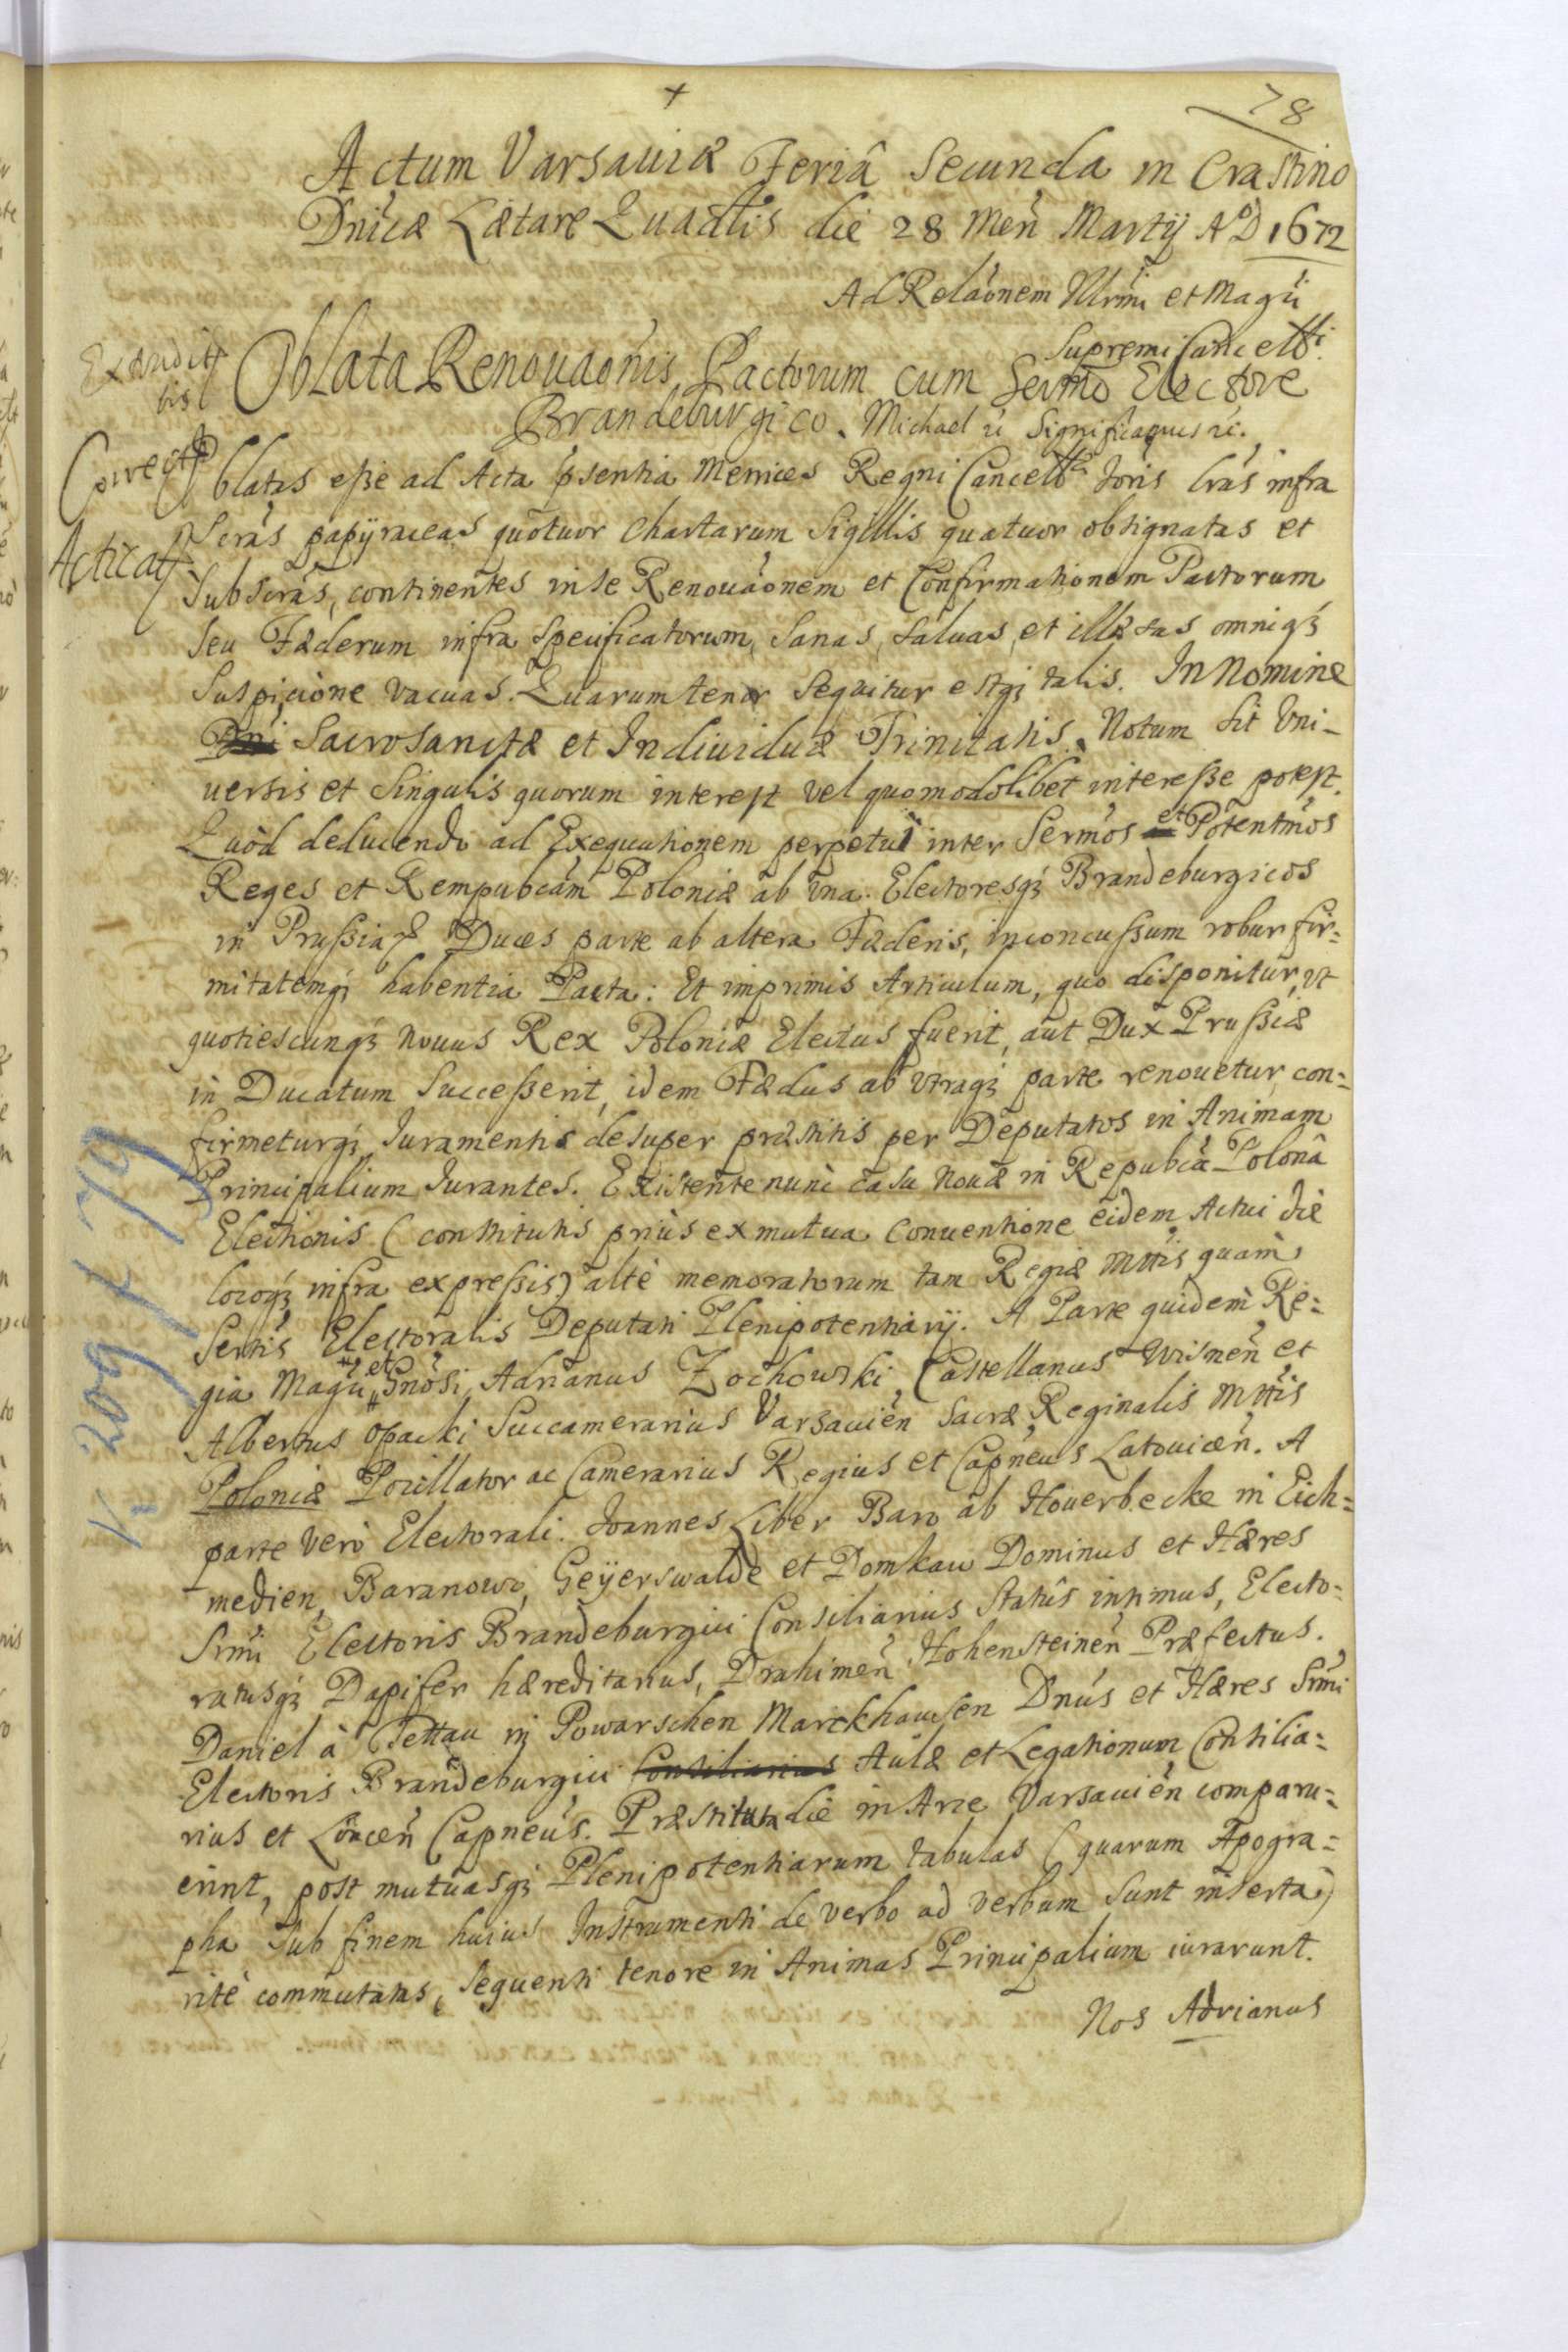 78
Actum Varsaviæ Feriâ Secunda in Crastino
Dnicæ Lætare Quadlis die 28 Men Martij AoD 1672
Ad Relaonem Illrmi et Magci
Supremi Cancelli.
Oblata Renouaonis Pactorum cum Sermo Electore
Brandeburgico. Michael &c Significamus &c.
Correct
Oblatas eße ad Acta psentia Metrices Regni Cancellrae Joris lras infra
Acticat
Scras papÿraceas quotuor Chartarum Sigillis quatuor obsignatas et
Subscras, continentes in se Renouaonem et Confirmationem Pactorum
seu Fæderum infra specificatorum, Sanas, saluas, et illæsas omniqȝ
Suspicione vacuas. Quarum tenor sequitur estqȝ talis. In Nomine
Dni Sacrosanctæ et Indiuiduæ Trinitatis. Notum sit Vni-
uersis et Singulis quorum interest vel quomodolibet intereße potest.
Quòd deducendo ad Exequutionem perpetui inter Sermos et Potentmos
Reges et Rempubcam Poloniæ ab vna. Electoresqȝ Brandeburgicos
in Prußia Duces parte ab altera Fæderis, inconcussum robur fir=
mitatemqȝ habentia Pacta: Et imprimis Articulum, quo disponitur, vt
quotiescunqȝ nouus Rex Poloniæ Electus fuerit, aut Dux Prußiæ
in Ducatum Succeßerit, idem Fædus ab vtraqȝ parte renouetur con=
firmeturqȝ Iuramentis desuper præstitis per Deputatos in Animam
Principalium Iurantes. Existente nunc casu nouæ in Repubca Polonâ
Electionis (constitutis priùs ex mutua Conuentione eidem Actui die
locoqȝ infra expreßis) altè memoratorum tam Regiæ Mttis quàm
Sertis Electoralis Deputati Plenipotentiarij. A Parte quidem Re=
gia Magci et Gnosi Adrianus Zochowski Castellanus Wisnen et
Albertus Opacki Succamerarius Varsauien Sacræ Reginalis Mttis
Poloniæ Pocillator ac Camerarius Regius et Capneus Latouicen. A
parte verò Electorali. Joannes Liber Baro ab Houerbecke in Eich=
medien, Baranowo, Geÿerswalde et Domkau Dominus et Hæres
Srmi Electoris Brandeburgici Consiliarius Statûs intimus, Electo=
ratusqȝ Dapifer hæreditarius, Drahimen Hohensteinen Præfectus.
Daniel à Tettau in Powarschen Marckhausen Dnus et Hæres Srmi
Electoris Brandeburgici Consiliarius Aulæ et Legationum Consilia=
rius et Capneus. Præstituta die in Arce Varsauien comparu=
erint, post mutuasqȝ Plenipotentiarum tabulas (quarum Apogra=
pha sub finem huius Instrumenti de verbo ad verbum sunt inserta)
ritè commutatas, sequenti tenore in Animas Principalium iurarunt.
Nos Adrianus
V. 209 f 79